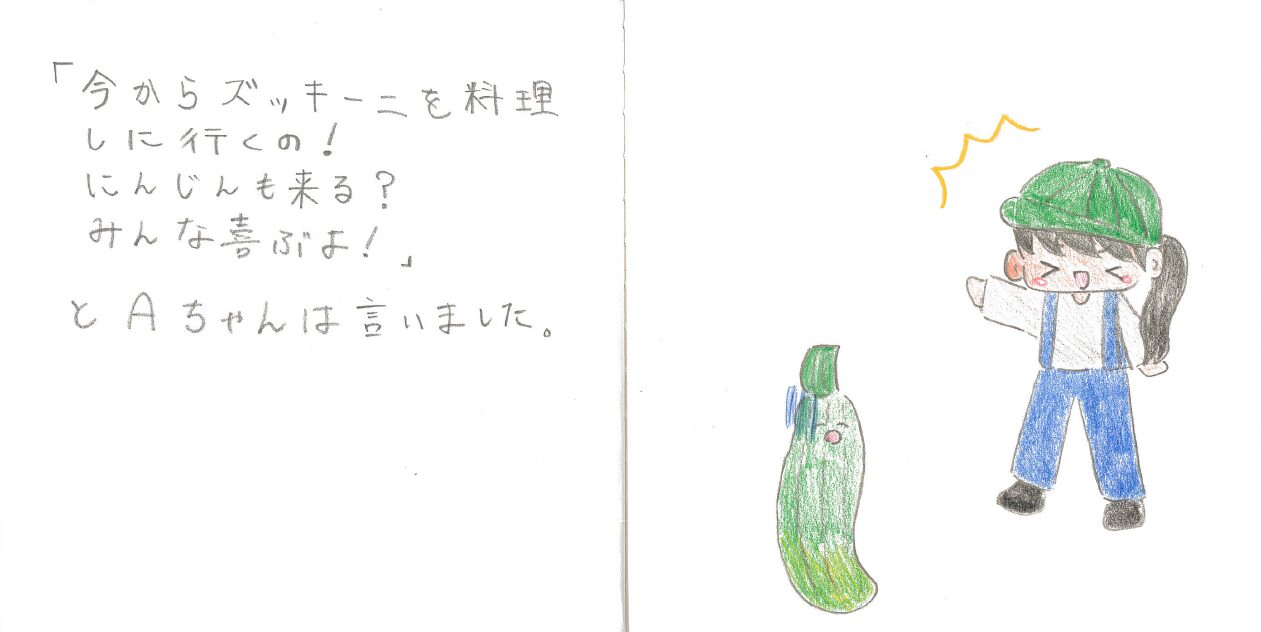 「今からズッキーニを料理
しに行くの！
にんじんも来る？
みんな喜ぶよ！」
とAちゃんは言いました。